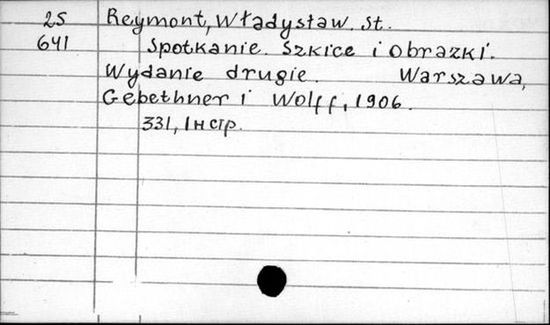 25 Reymont, Władysław. St.
641 Spotkanie. Szkice i obrazki.
Wydanie drugie. Warszawa,
Gebethner i Wolff, 1906.
331, 1нстр.